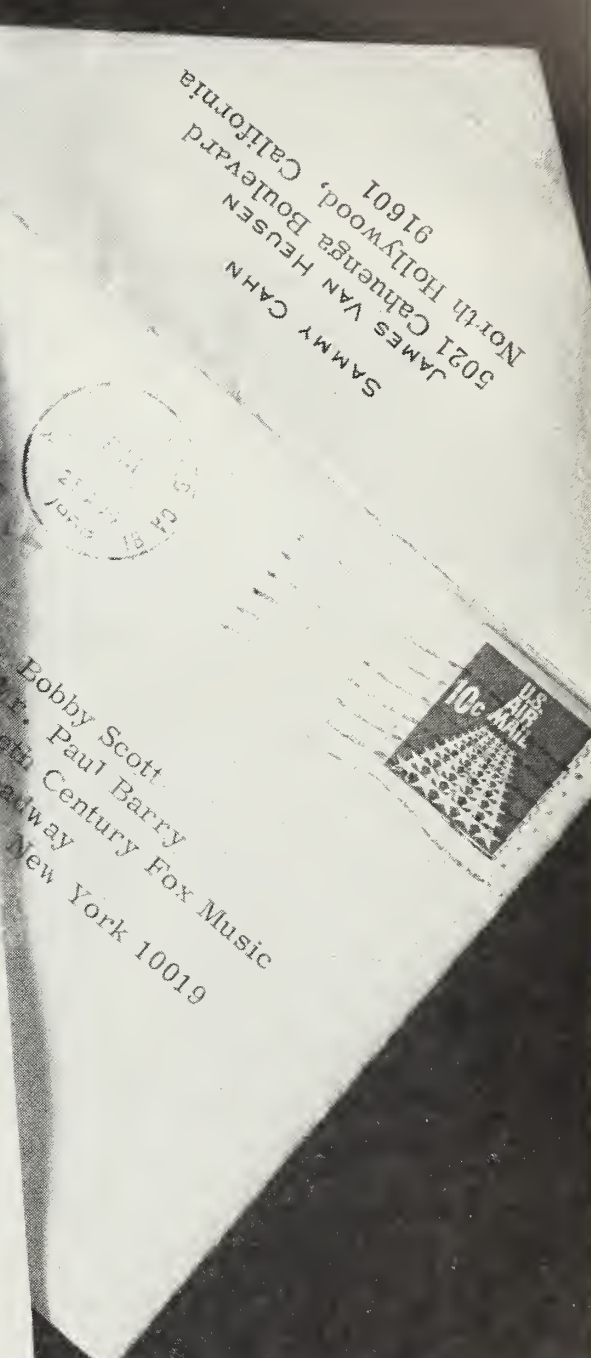 SAMMY CAHN
JAMES VAN HEUSEN
5021 Cahuenga Boulevard
North Hollywood, California
91601
U.S.
AIR
MAIL
10c
Bobby Scott
Paul Barry
Century Fox Music
New York 10019